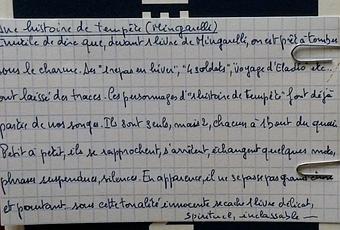 une histoire de tempête (Mingarelli)
Inutile de dire que, devant 1 livre de Mingarelli, on est prêt à tomber
sous le charme. Ses "1 repas en hiver", "4 soldats", voyage d'Eladio etc
ont laissé des traces. Les personnages d'"1 histoire de tempête" font déjà
partie de nos songes. Ils sont seuls, mais 2, chacun à 1 bout du quai
Petit à petit, ils se rapprochent, s'arrêtent, échangent quelques mots,
phrases suspendues, silences. En apparence, il ne se passe pas grand chose
et pourtant sous cette tonalité innocente se cache 1 livre délicat,
spirituel, inclassable —